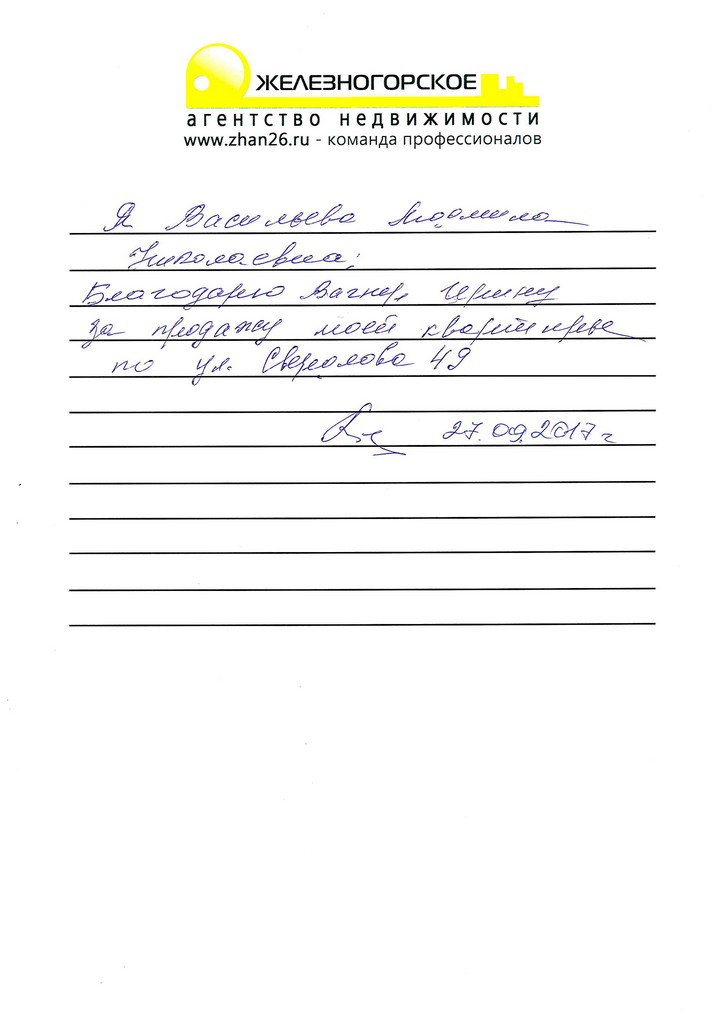 ЖЕЛЕЗНОГОРСКОЕ
агентство недвижимости
www.zhan26.ru - команда профессионалов
Я Васильева Людмила
Николаевна;
Благодарю Вагнер Ирину
за продажу моей квартиры
по ул. Свердлова 49
27.09.2017г